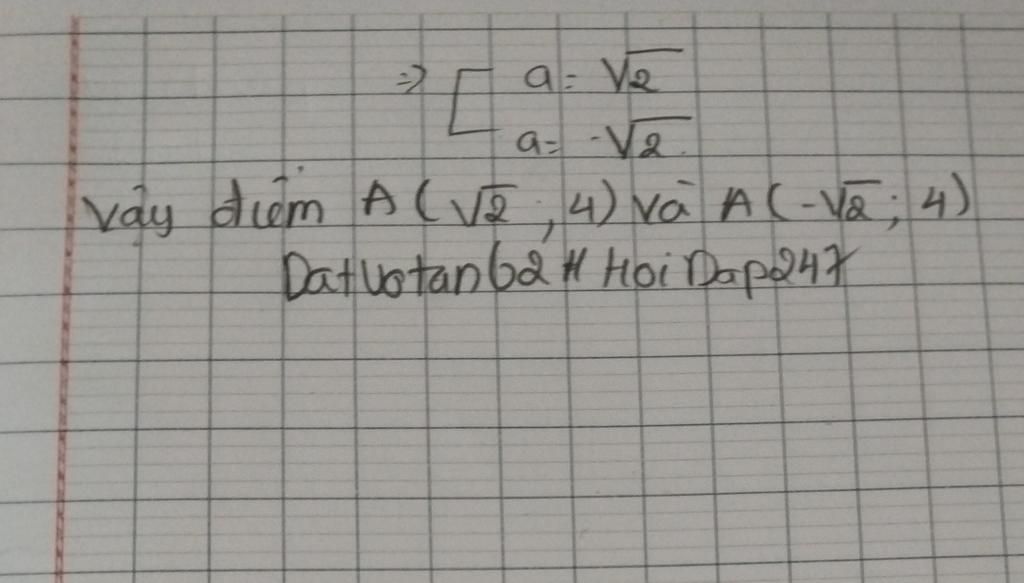 => [ a = √2
a = -√2
Vậy điểm A(√2; 4) và A(-√2; 4)
Datvotan62 # HoiDap247